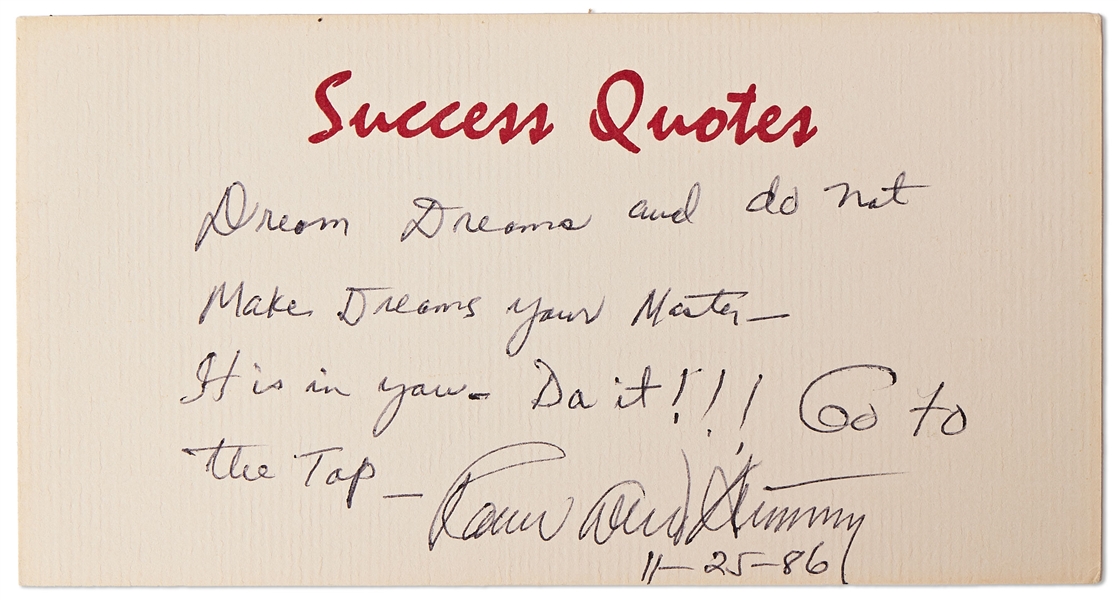 Success Quotes
Dream Dreams and do not
Make Dreams your Master—
It is in you - Do it!!! Go to
the Top —
11-25-86